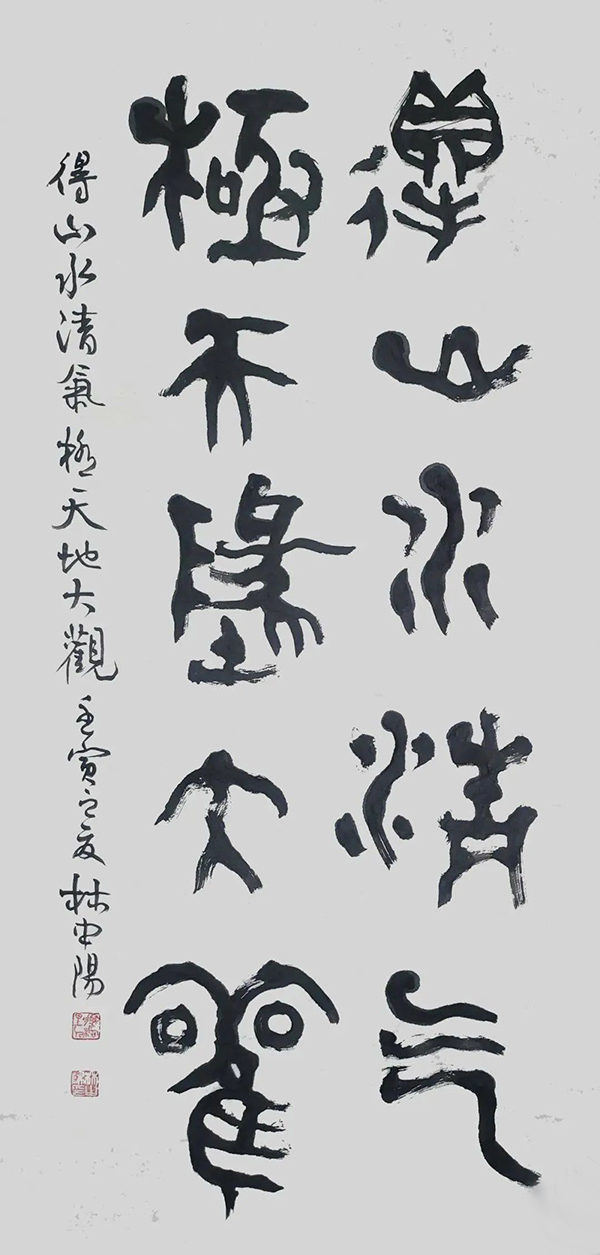 得山水清气
極天地大觀
得山水清氣極天地大觀壬寅之夏林中陽